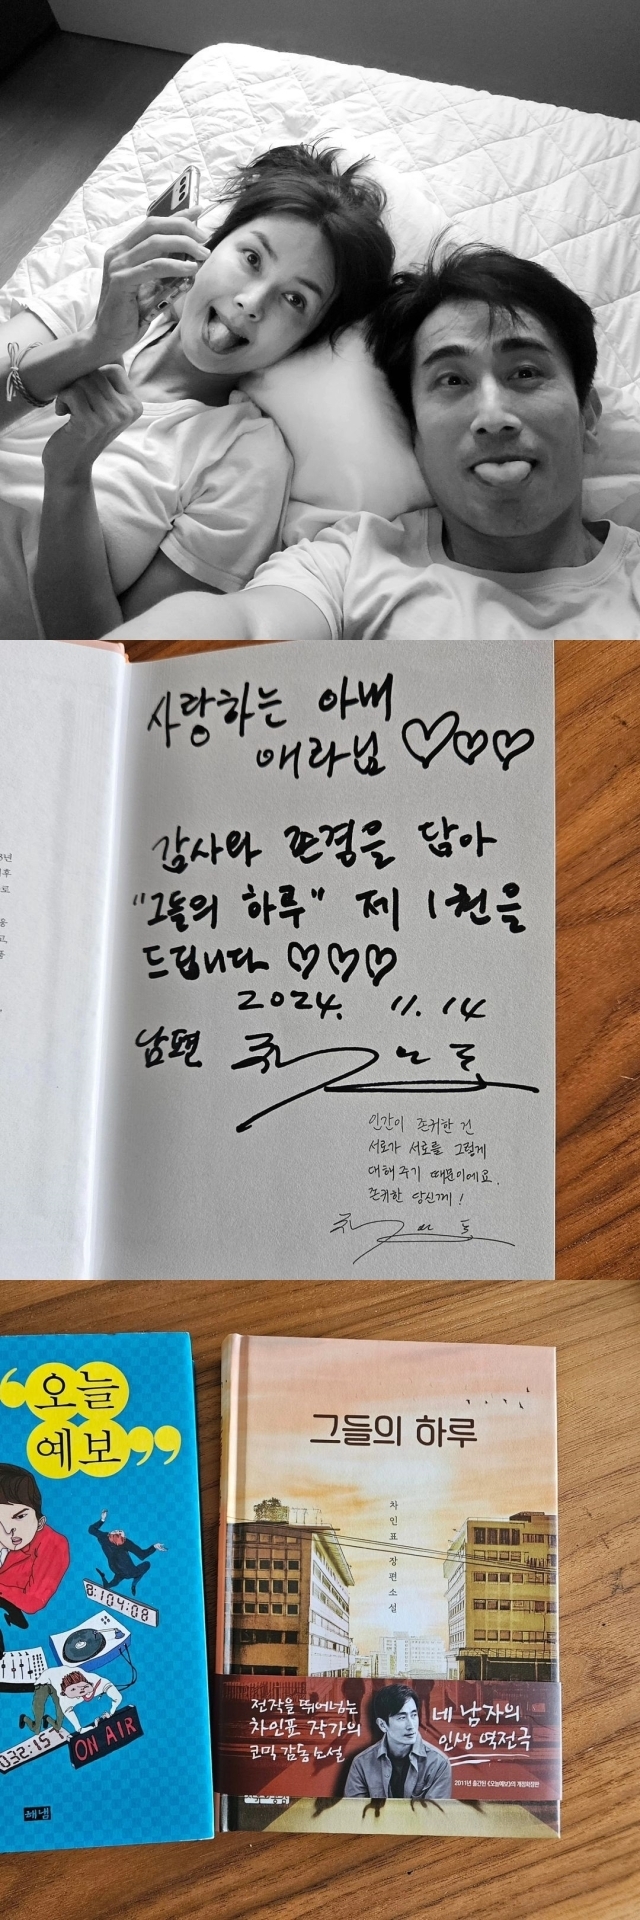 사랑하는 아내
애라님 ♡♡♡
감사와 존경을 담아
"그들의 하루" 제 1권을
드립니다 ♡♡♡
2024. 11. 14
남편 차인표
인간이 존귀한 건
서로가 서로를 그렇게
대해 주기 때문이에요.
존귀한 당신께!
차인표
“오늘
예보”
8:104:08
032:15
ON AIR
해냄
그들의 하루
차인표 장편소설
전작을 뛰어넘는
차인표 작가의
코믹 감동 소설
네 남자의
인생 역전극
2011년 출간된 《오늘예보》의 개정확장판